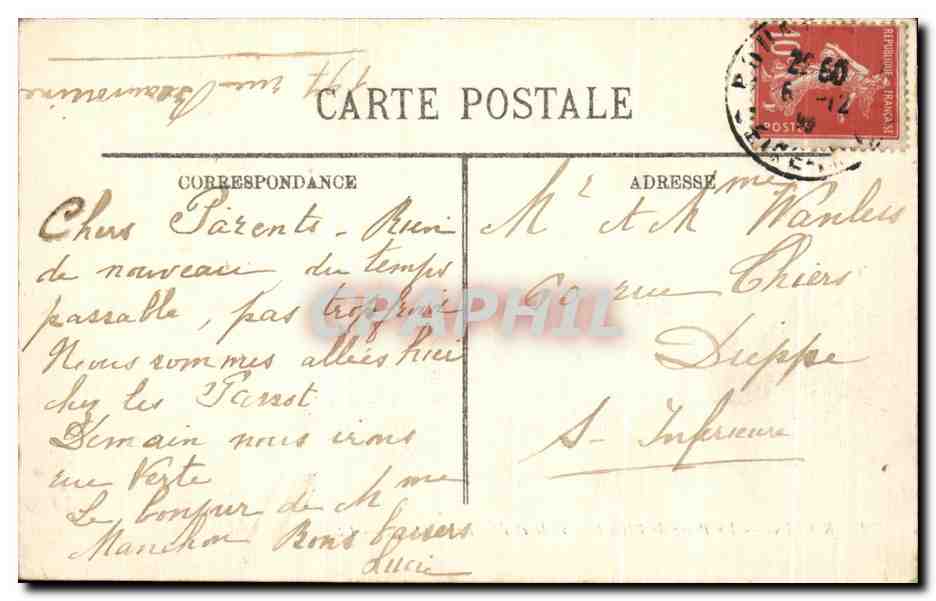 CARTE POSTALE
rue
CORRESPONDANCE
Chers Parents - Rien
de nouveau du temps
passable, pas trop froid
Nous sommes allées hier
chez les Parrot
Demain nous irons
rue Verte
Le bonjour de Mme
Manchon Bons baisers
Lucie
ADRESSE
Mr et Mme Wanlers
90 rue Thiers
Dieppe
S- Inferieure
REPUBLIQUE FRANÇAISE
10
POSTES
6 -12
CPAPHIL